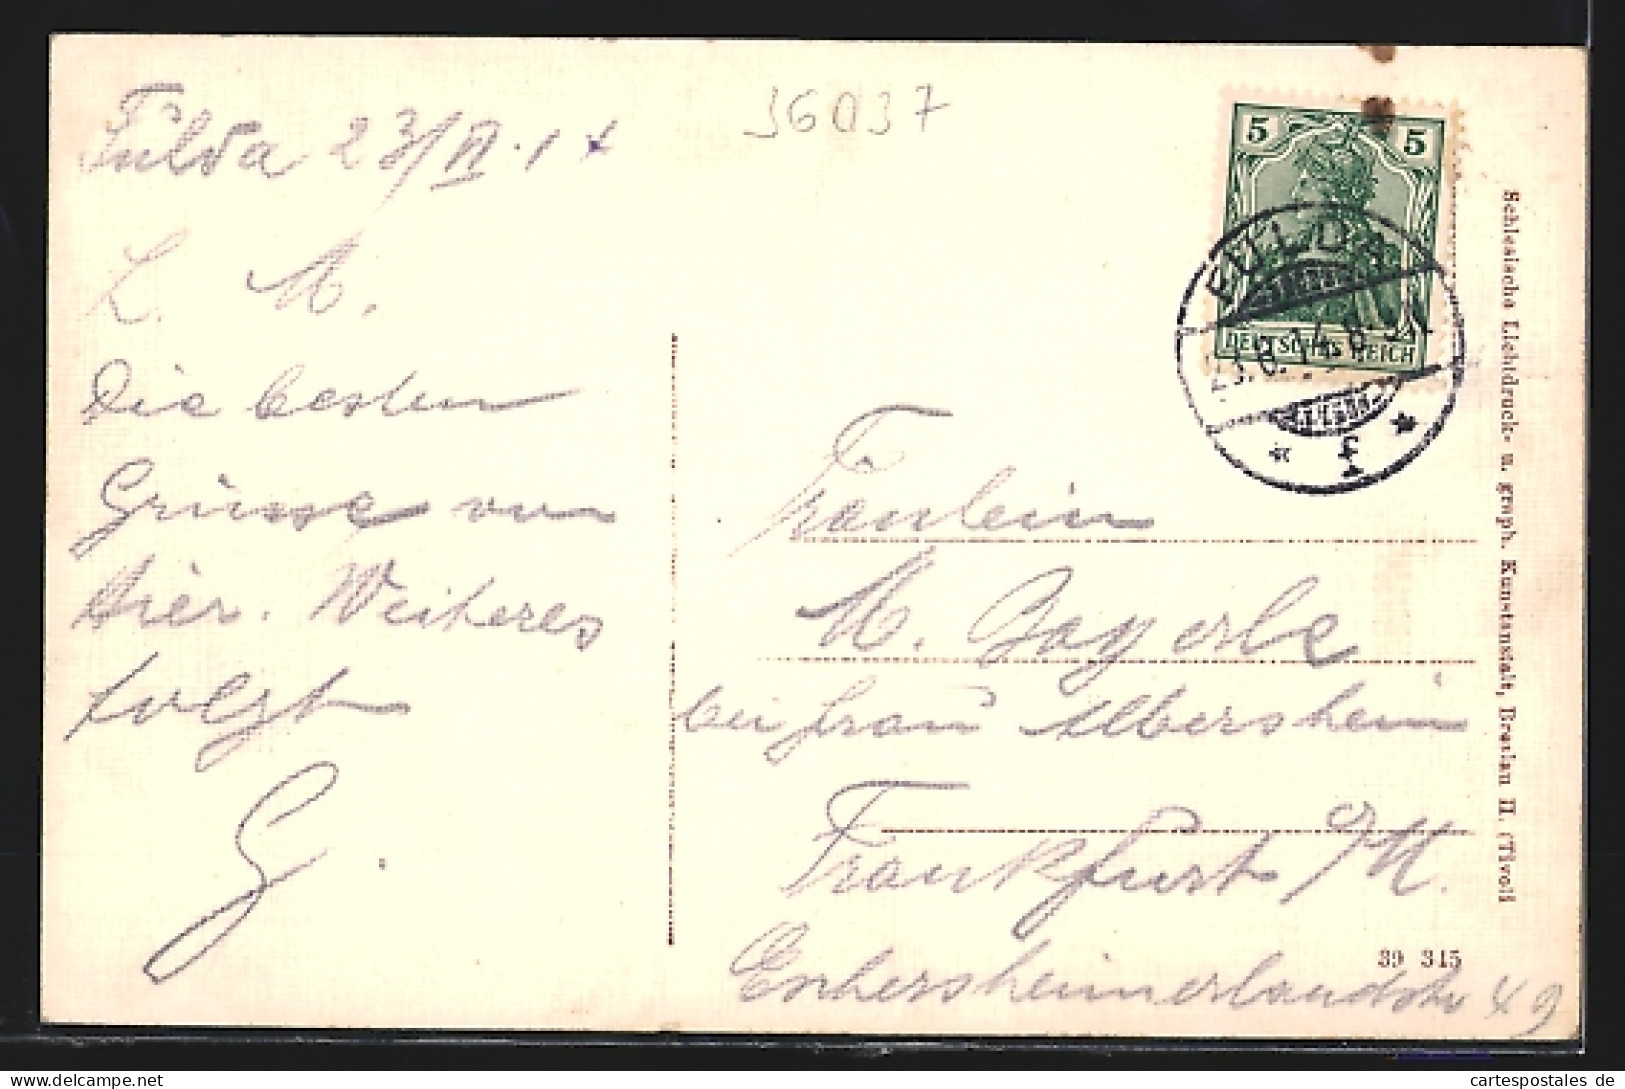 36037
Fulda 23/VI.14
L. M.
Die besten
Grüsse von
hier. Weiteres
folgt
G.
5 5
DEUTSCHES REICH
FULDA
23.6.14. 8-9
* f *
Fräulein
M. Bayerle
bei Frau Albersheim
Frankfurt /M.
Eschersheimerlandstr 49
39 315
Schlesische Lichtdruck- u. graph. Kunstanstalt, Breslau II. (Tivoli
cartespostales de